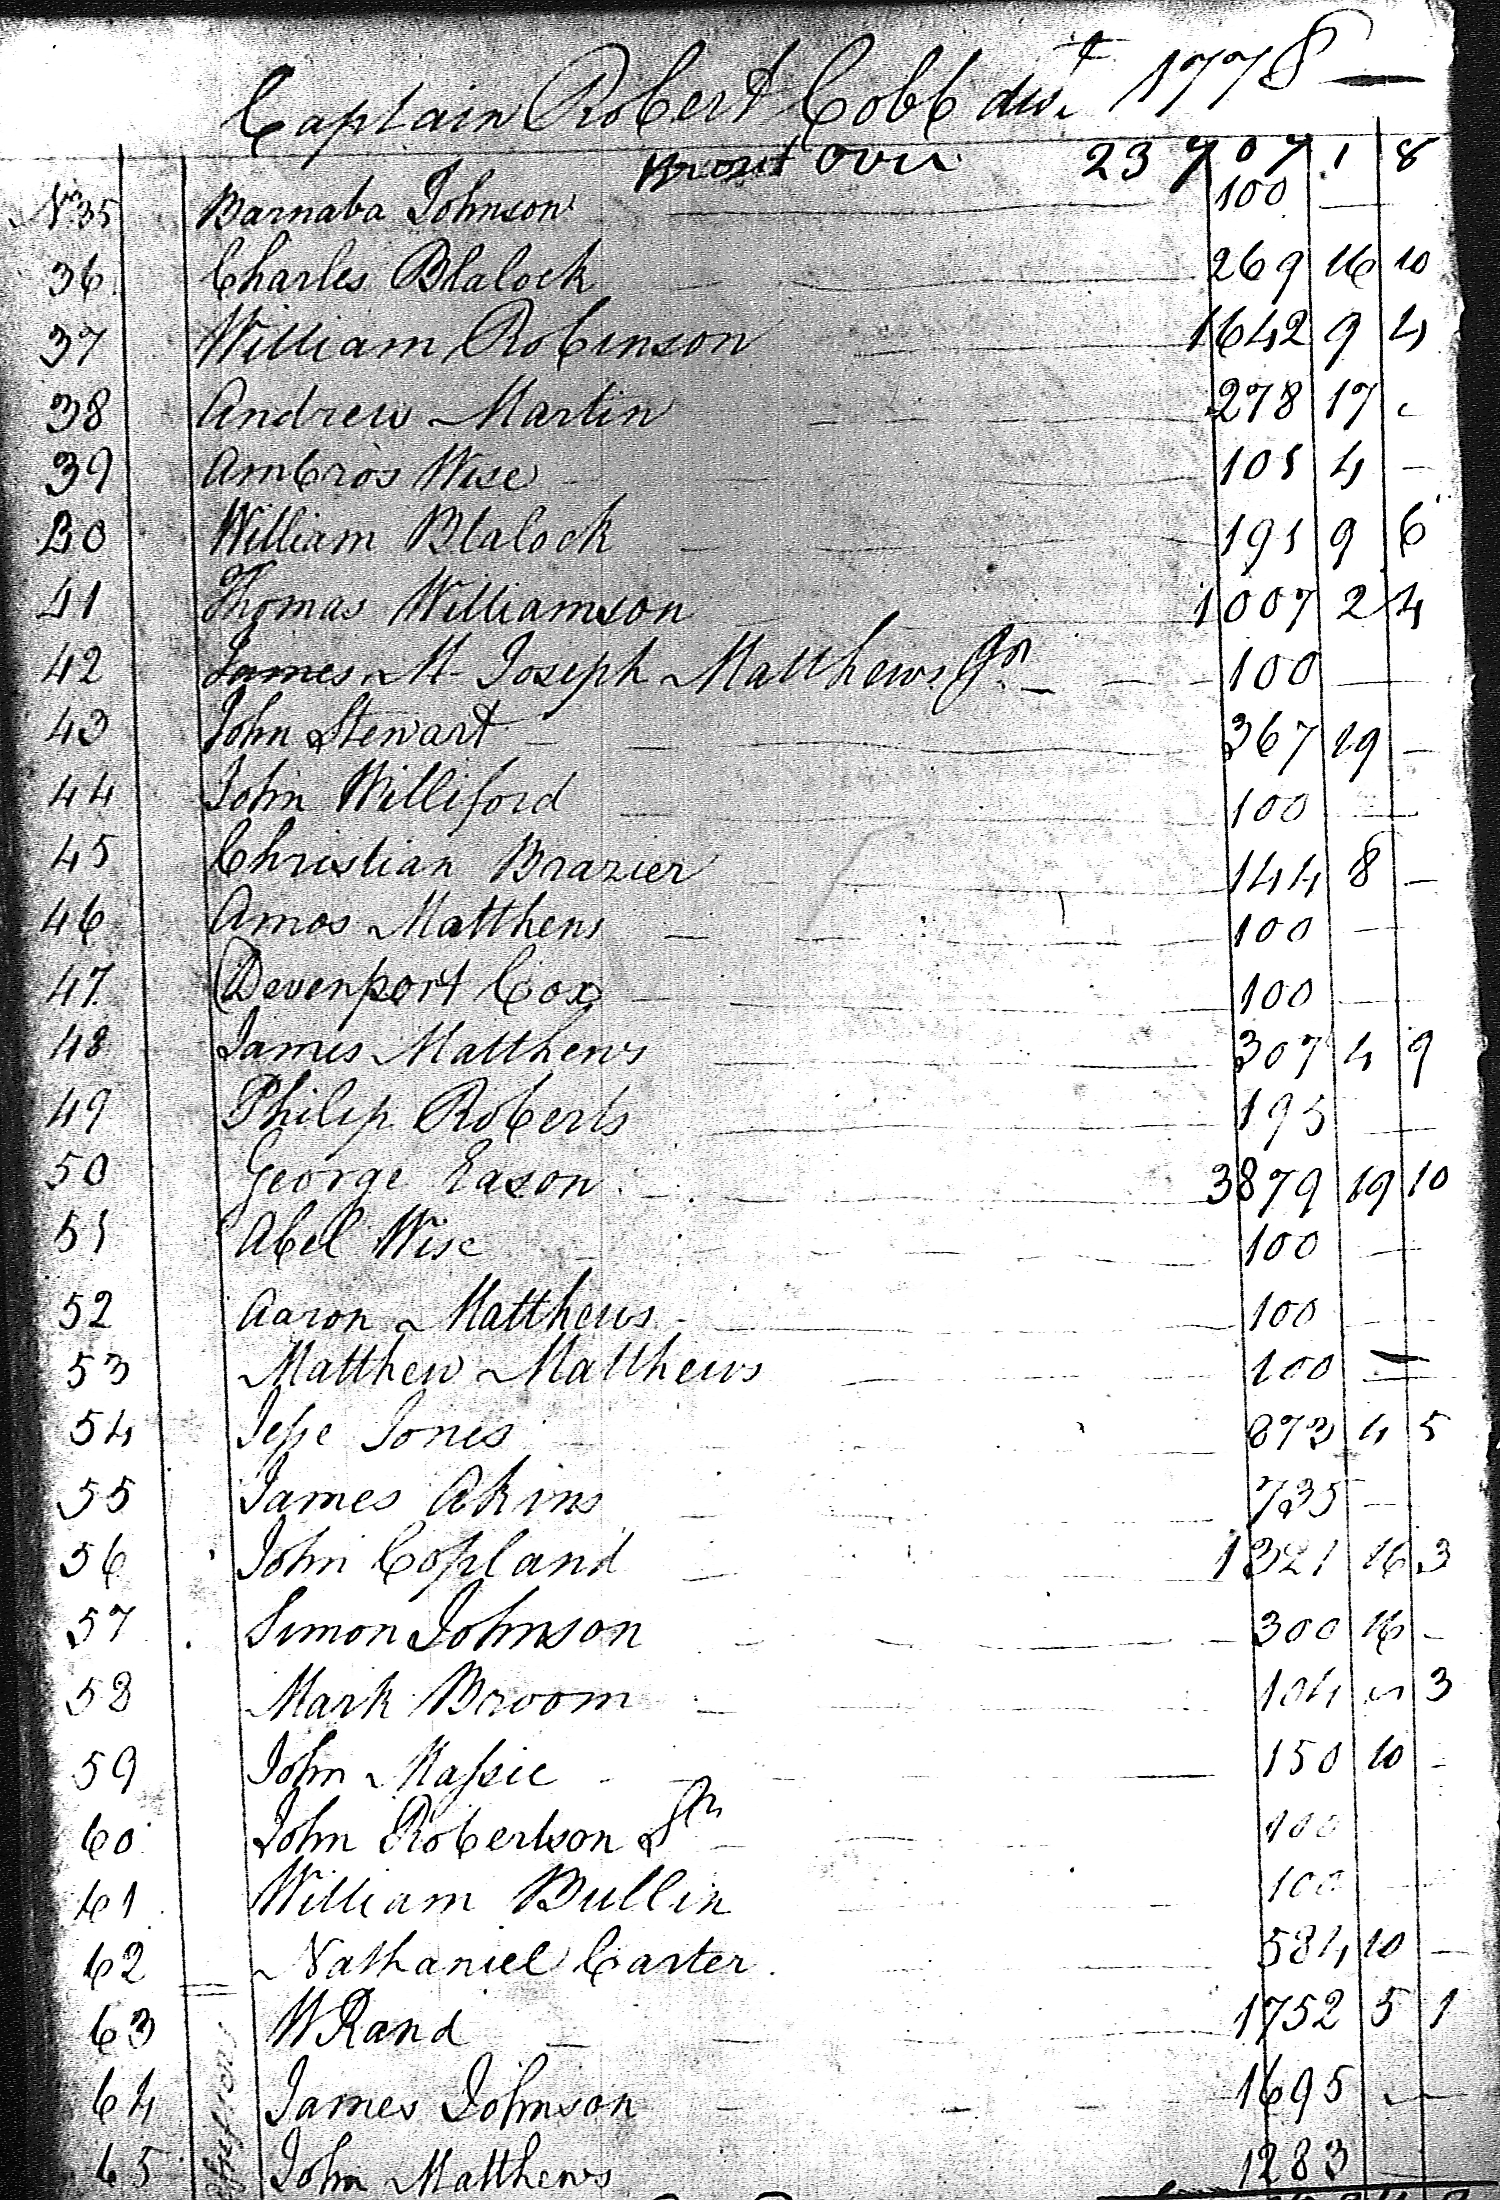 Captain Robert Cobb dist 1778
Brout Over 23707 1 8
No 35 Barnaba Johnson 100
36 Charles Blalock 269 16 10
37 William Robinson 1642 9 4
38 Andrew Martin 278 17 -
39 Ambros Wise 105 4 -
40 William Blalock 191 9 6
41 Thomas Williamson 1007 2 4
42 James M Joseph Matthews Jn 100
43 John Stewart 367 19 -
44 John Williford 100
45 Christian Brazier 144 8 -
46 Amos Matthews 100
47 Devenport Cox 100
48 James Matthews 307 4 9
49 Philip Roberts 195
50 George Eason 3879 19 10
51 Abel Wise 100
52 Aaron Matthews 100
53 Matthew Matthews 100
54 Jesse Jones 873 4 5
55 James Akins 735
56 John Copland 1321 16 3
57 Simon Johnson 300 16 -
58 Mark Broom 104 3
59 John Massie 150 10 -
60 John Robertson Sn 100
61 William Bullin 100
62 Nathaniel Carter 584 10 -
63 W Rand 1752 5 1
64 James Johnson 1695
65 John Matthews 1283